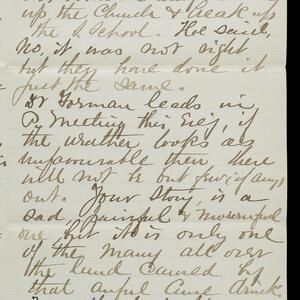 up the Church & break up
the S. School. He said,
No, it was not right
but they have done it
just the same.
Dr Gorman leads in
P. Meeting this Eve'g, if
the weather looks as
unfavourable then there
will not be but few (if any)
out. Your story, is a
sad, painful & mournful
one but it is only one
of the many all over
the land caused by
that awful Curse drink.